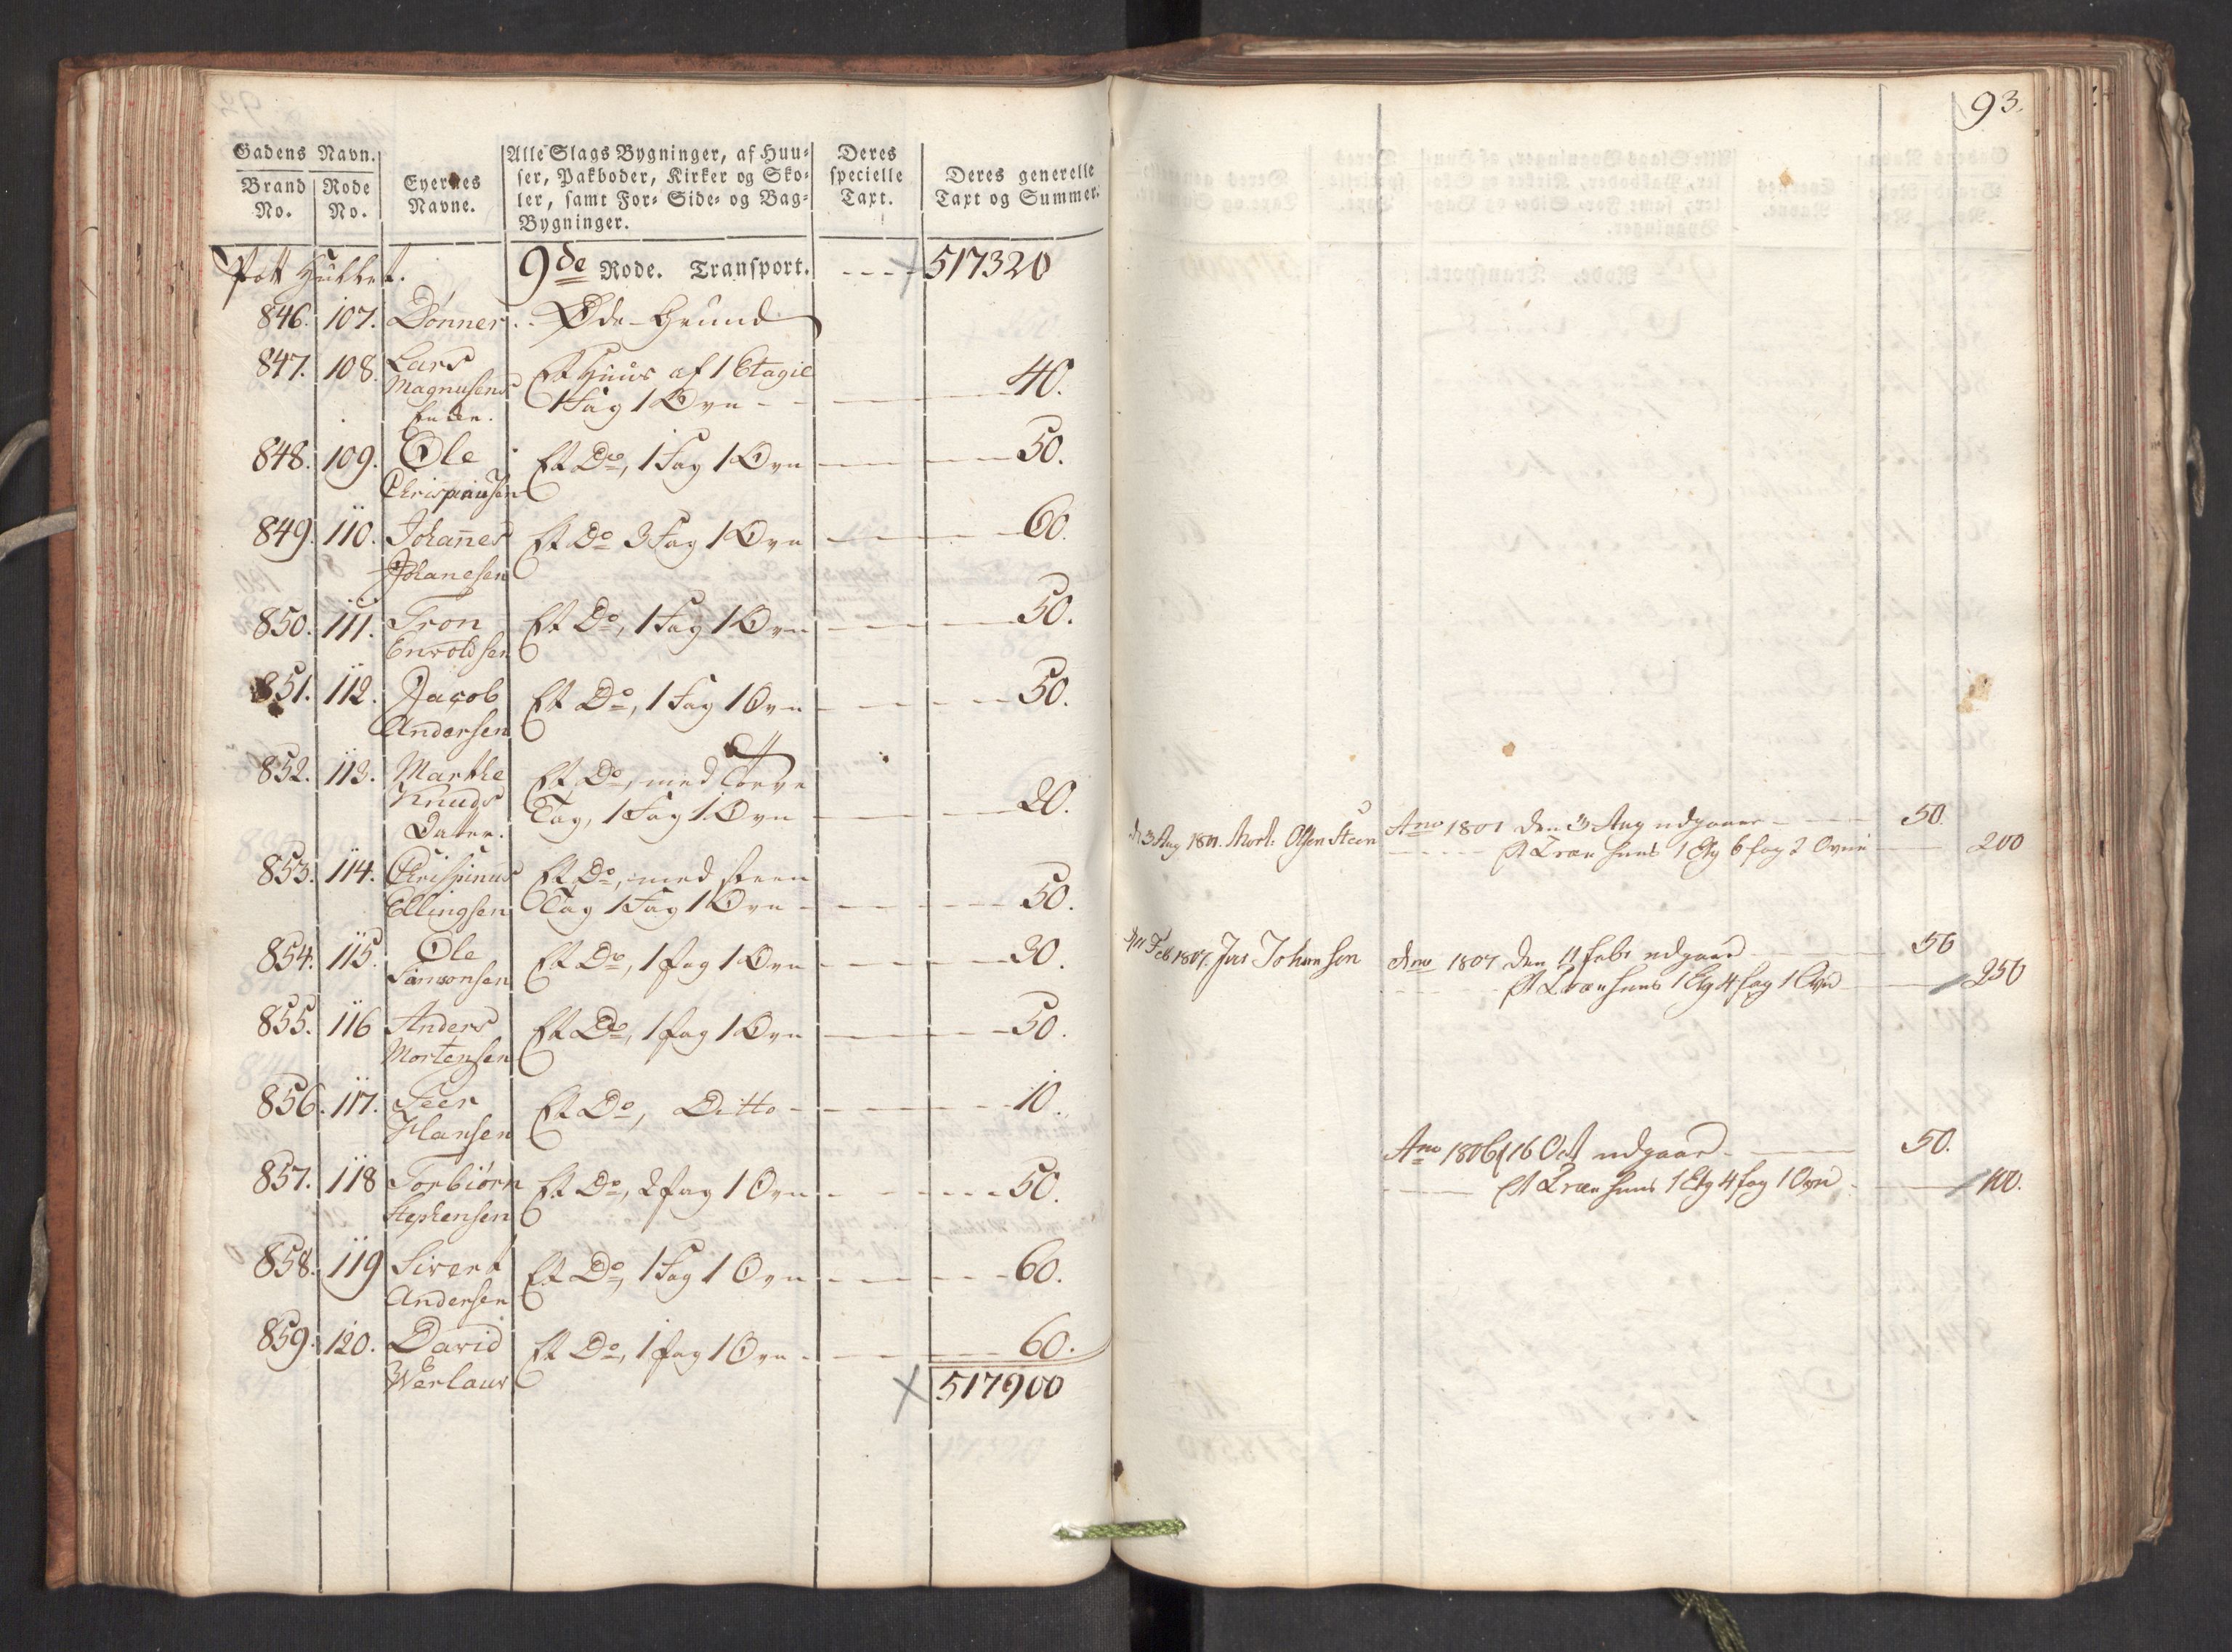 Gadens Navn.
Brand No.
Rode No.
Eyernes Navne.
Alle Slags Bygninger, af Huu-
ser, Pakboder, Kirker og Sko-
ler, samt For- Side- og Bag-
Bygninger.
Deres specielle Taxt.
Deres generelle Taxt og Summer.
Pott Hullet. 9de Rode. Transport. 517320
846. 107. Dønner. Øde-Grund
847. 108. Lars Et Huus af 1 Etagie
Magnusens 1 Fag 1 Ovn 40.
Enke.
848. 109. Ole Et Do, 1 Fag 1 Ovn 50.
Chrispinusen
849. 110. Johannes Et Do 3 Fag 1 Ovn 60.
Johanesen
850. 111. Tron Et Do, 1 Fag 1 Ovn 50.
Envoldsen
851. 112. Jacob Et Do, 1 Fag 1 Ovn 50.
Andersen
852. 113. Marthe Et Do, med Torve
Knuds Tag, 1 Fag 1 Ovn 20.
Datter.
853. 114. Chrispinus Et Do, med Steen
Ellingsen Tag 1 Fag 1 Ovn 50.
854. 115. Ole Et Do, 1 fag 1 Ovn 30.
Simonsen
855. 116 Anders Et Do, 1 fag 1 Ovn 50.
Mortensen
856. 117. Peer Et Do, Ditto 10.
Hansen
857. 118 Torbiørn Et Do, 2 fag 1 Ovn 50.
Stephensen
858. 119 Sivert Et Do, 1 Fag 1 Ovn 60.
Andersen
859. 120. David Et Do, 1 fag 1 Ovn 60.
Werlauw
517900
93.
d 3 Aug 1801. Mort: Olsen Steen Ano 1801 den 3 Aug udgaaer 50.
Et Træe huus 1 Etg 6 fag 2 Ovne 200
d 11 Feb 1807. Jens Johnson Ano 1807 den 11 febr udgaar 50
Et Træe huus 1 Etg 4 fag 1 Ovn 250
Ano 1806 d 16 Oct udgaar 50.
Et Træe huus 1 Etg 4 fag 1 Ovn 100.